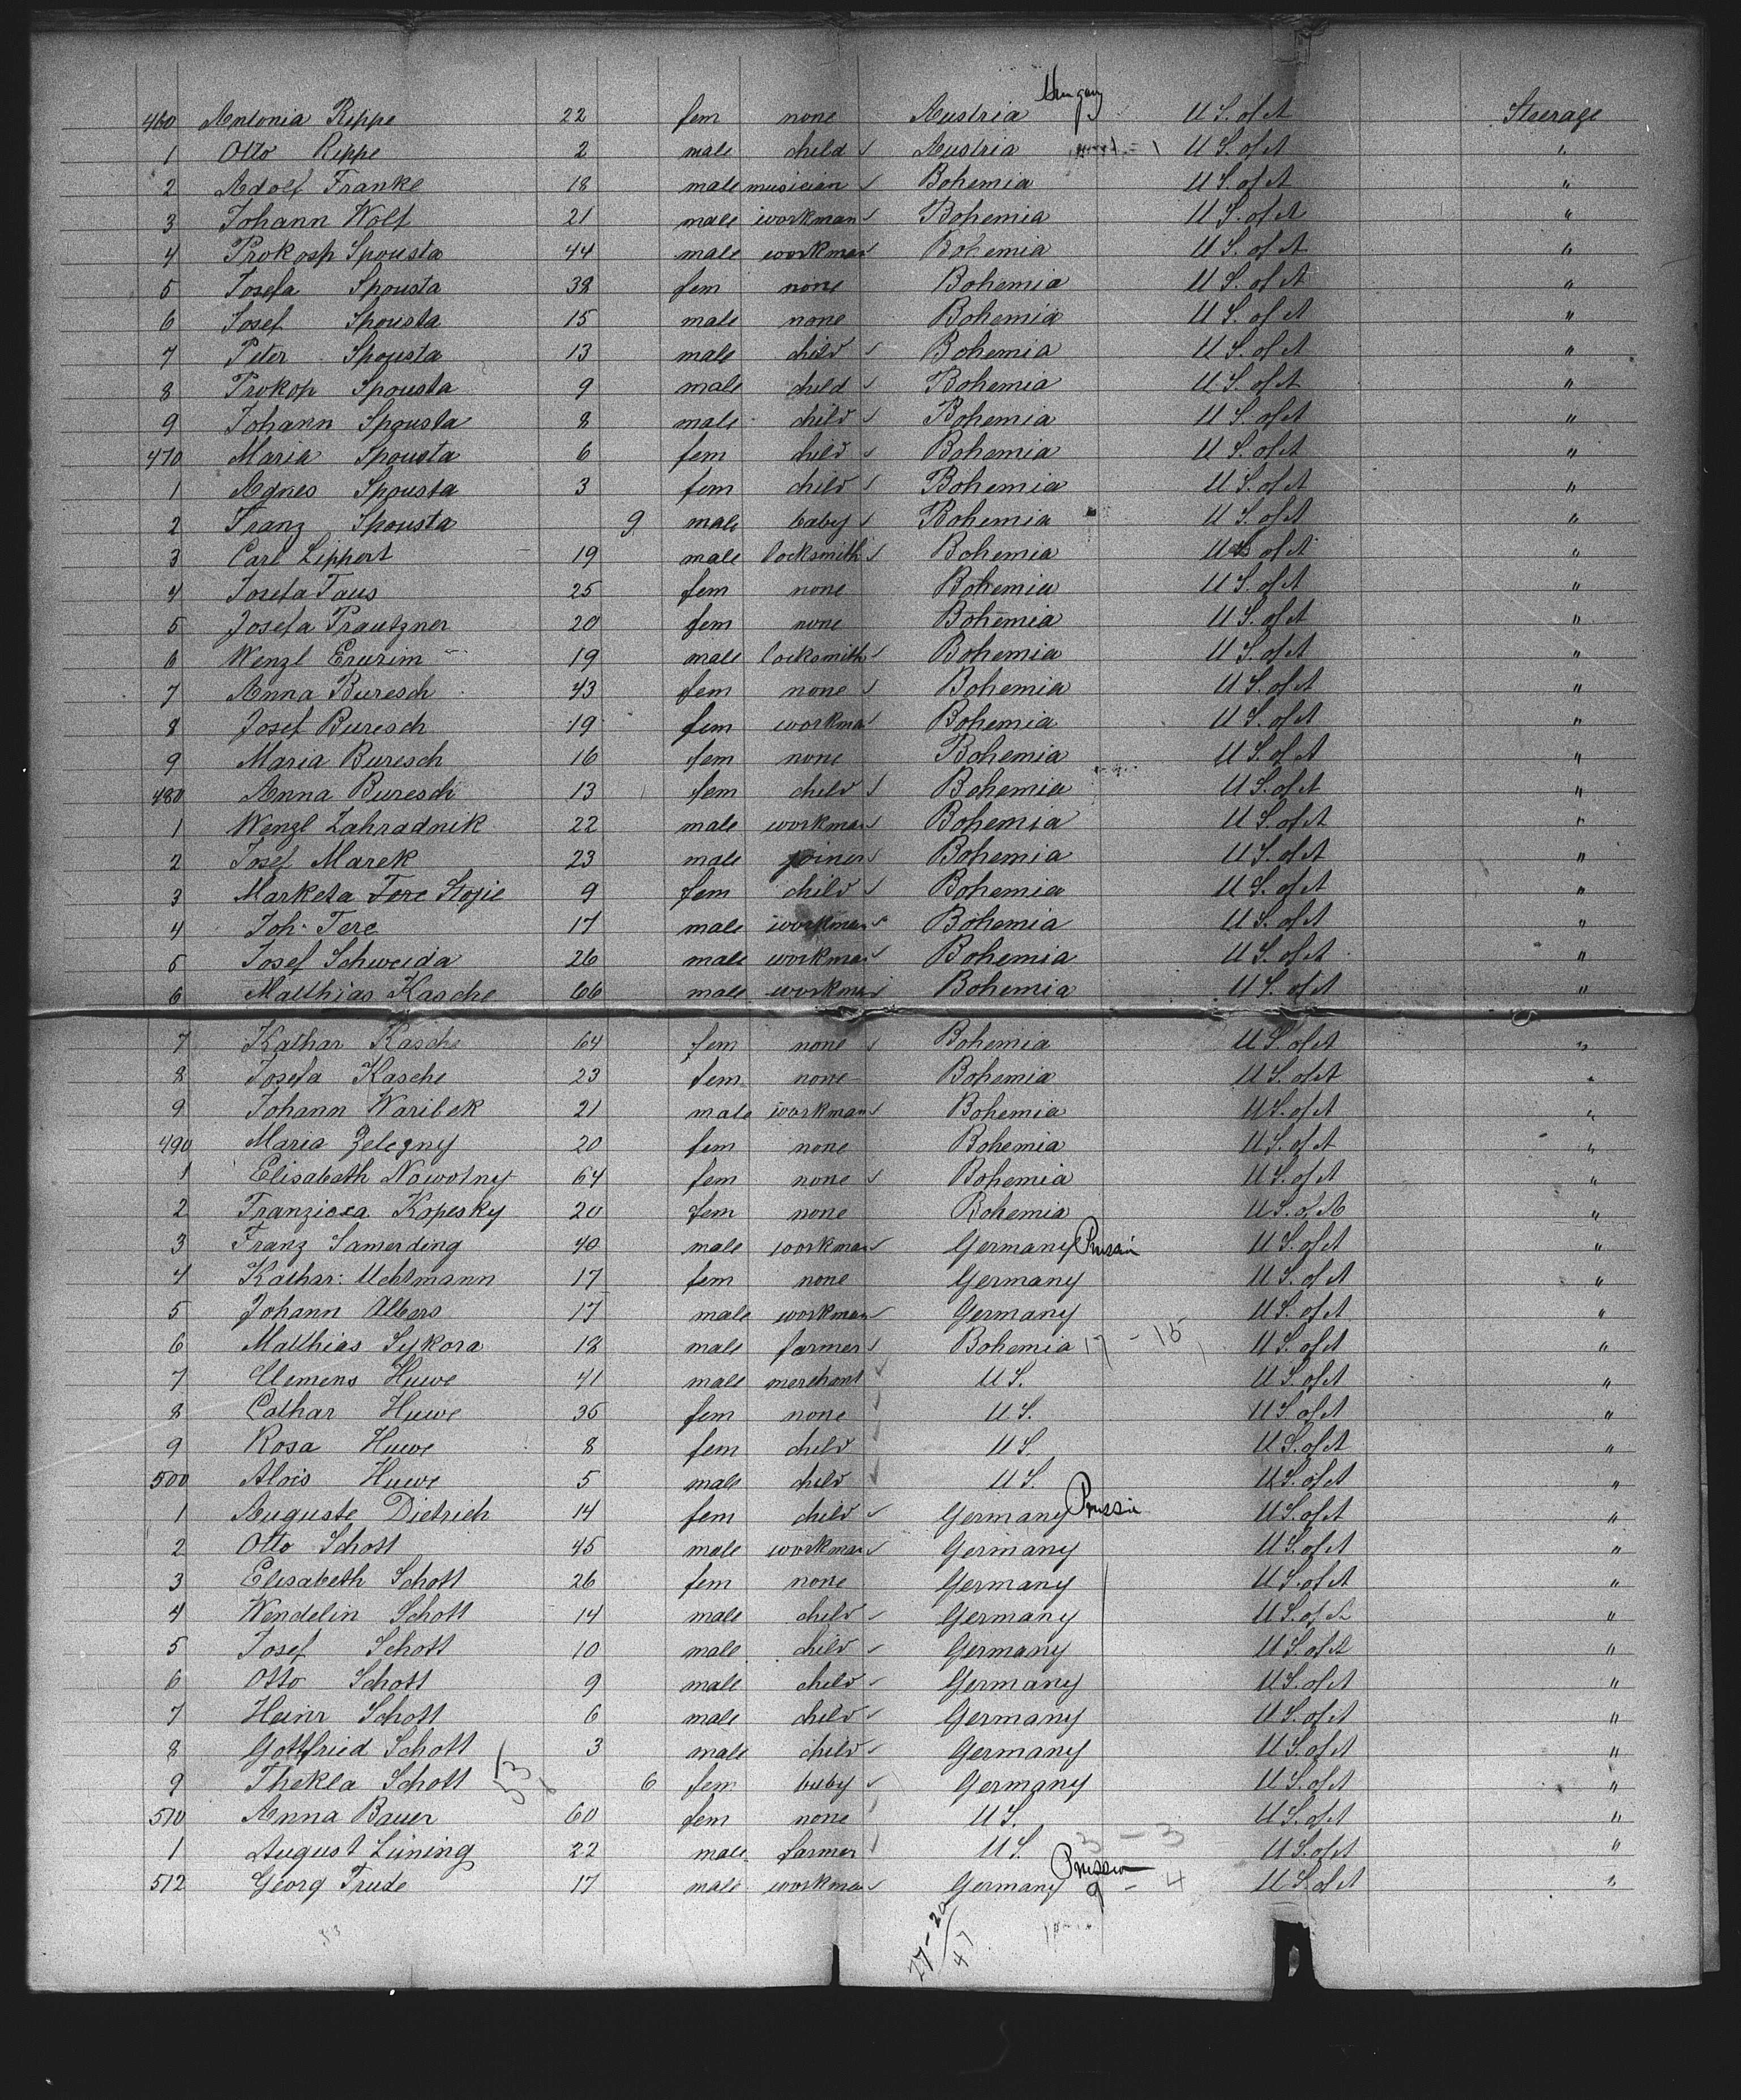 Hungary
460 Antonia Rippe 22 fem none Austria U S. of A Steerage
1 Otto Rippe 2 male child Austria 1 U S. of A "
2 Adolf Franke 18 male musician Bohemia U S. of A "
3 Johann Wolf 21 male workman Bohemia U S. of A "
4 Prokosp Spousta 44 male workman Bohemia U S. of A "
5 Josefa Spousta 38 fem none Bohemia U S. of A "
6 Josef Spousta 15 male none Bohemia U S. of A "
7 Peter Spousta 13 male child Bohemia U S. of A "
8 Prokop Spousta 9 male child Bohemia U S. of A "
9 Johann Spousta 8 male child Bohemia U S. of A "
470 Maria Spousta 6 fem child Bohemia U S. of A "
1 Agnes Spousta 3 fem child Bohemia U S. of A "
2 Franz Spousta 9 male baby Bohemia U S. of A "
3 Carl Lippert 19 male locksmith Bohemia U S of A "
4 Josefa Taus 25 fem none Bohemia U S. of A "
5 Josefa Prautzner 20 fem none Bohemia U S. of A "
6 Wenzl 19 male locksmith Bohemia U S. of A "
7 Anna Buresch 43 fem none Bohemia U S. of A "
8 Josef Buresch 19 fem workma Bohemia U S. of A "
9 Maria Buresch 16 fem none Bohemia U S. of A "
480 Anna Buresch 13 fem child Bohemia U S. of A "
1 Wenzl Zahradnik 22 male workman Bohemia U S. of A "
2 Josef Marek 23 male joiner Bohemia U S. of A "
3 Marketa Terc 9 fem child Bohemia U S. of A "
4 Joh. Terc 17 male workman Bohemia U S. of A "
5 Josef Schweida 26 male workman Bohemia U S. of A "
6 Matthias Kasche 66 male workman Bohemia U S. of A "
7 Kathar Kasche 64 fem none Bohemia U S. of A "
8 Josefa Kasche 23 fem none Bohemia U S. of A "
9 Johann Waribek 21 male workman Bohemia U S. of A "
490 Maria Zelezny 20 fem none Bohemia U S. of A "
1 Elisabeth Nowotny 64 fem none Bohemia U S. of A "
2 Franzisca Kopesky 20 fem none Bohemia U S. of A "
3 Franz Samerding 40 male workman Germany Prussia U S. of A "
4 Kathar: Uchtmann 17 fem none Germany U S. of A "
5 Johann Albers 17 male workman Germany U S. of A "
6 Matthias Sykora 18 male farmer Bohemia 17 - 15 U S. of A "
7 Clemens Huwe 41 male merchant U S. U S. of A "
8 Cathar Huwe 36 fem none U S. U S. of A "
9 Rosa Huwe 8 fem child U S. U S. of A "
500 Alois Huwe 5 male child U S. U S. of A "
1 Auguste Dietrich 14 fem child Germany Prussia U S. of A "
2 Otto Schott 45 male workman Germany U S. of A "
3 Elisabeth Schott 26 fem none Germany U S. of A "
4 Wendelin Schott 14 male child Germany U S. of A "
5 Josef Schott 10 male child Germany U S. of A "
6 Otto Schott 9 male child Germany U S. of A "
7 Heinr Schott 6 male child Germany U S. of A "
8 Gottfried Schott 3 male child Germany U S. of A "
9 Thekla Schott 53 6 fem baby Germany U S. of A "
510 Anna Bauer 60 fem none U S. U S. of A "
1 August Lüning 22 male farmer U S. 3 - 3 U S. of A "
512 Georg Trude 17 male workman Germany Prussia 9 - 4 U S. of A "
27-20
47
53